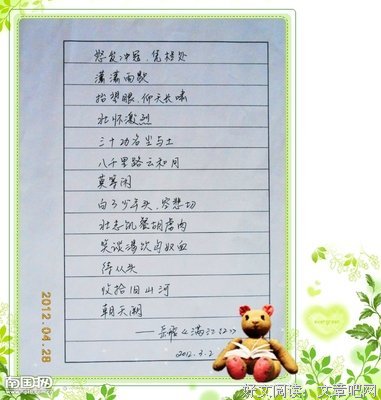 怒发冲冠，凭栏处
潇潇雨歇
抬望眼，仰天长啸
壮怀激烈
三十功名尘与土
八千里路云和月
莫等闲
白了少年头，空悲切
壮志饥餐胡虏肉
笑谈渴饮匈奴血
待从头
收拾旧山河
朝天阙
——岳飞《满江红》
2012.3.2
2012.04.28
evergreen
好文阅读：文章吧网